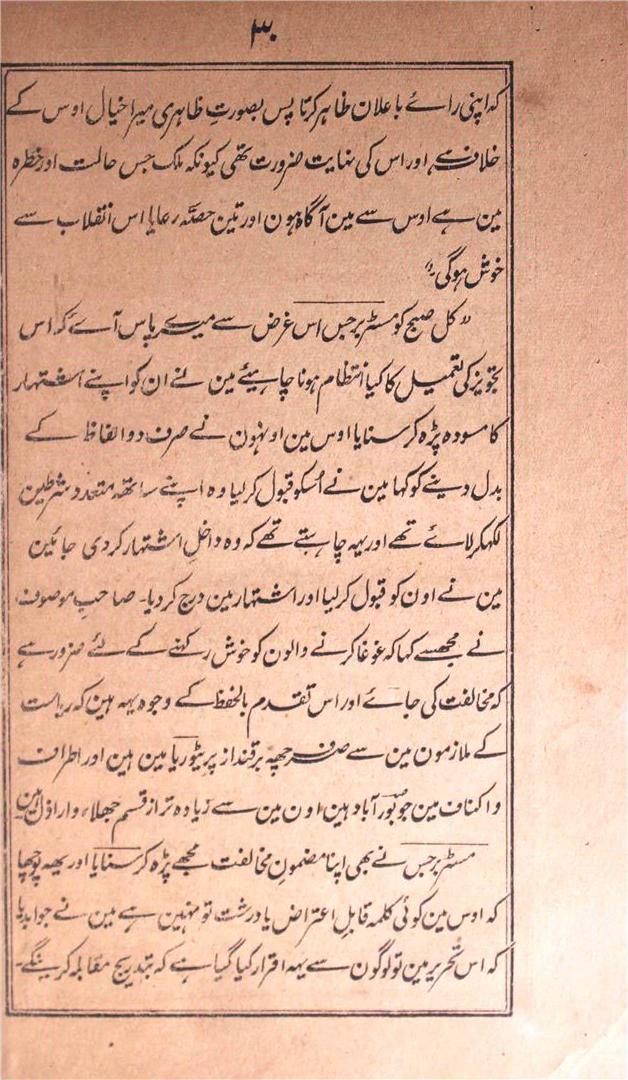 ۳۰
کہ اپنی رائے باعلان ظاہر کرتا پس بصورتِ ظاہری میرا خیال اوس کے
خلاف ہے اور اس کی نہایت ضرورت تھی کیونکہ ملک جس حالت اور خطرہ
مین ہے اوس سے مین آگاہ ہون اور تین حصّہ رعایا اس انقلاب سے
خوش ہوگی"
"کل صبح کو مسٹر برجس اس غرض سے میرے پاس آئے کہ اس
تجویز کی تعمیل کا کیا انتظام ہونا چاہیئے مین نے ان کو اپنے اشتہار
کا مسودہ پڑہ کر سنایا اوس مین اونہون نے صرف دو الفاظ کے
بدل دینے کو کہا مین نے اُسکو قبول کر لیا وہ اپنے ساتھ متعدد شرطین
لکھکر لائے تھے اور یہہ چاہتے تھے کہ وہ داخلِ اشتہار کر دی جائین
مین نے اون کو قبول کر لیا اور اشتہار مین درج کر دیا۔ صاحب موصوف
نے مجھسے کہا کہ غوغا کرنے والون کو خوش رکہنے کے لئے ضرور ہے
کہ مخالفت کی جائے اور اس تقدم بالحفظ کے وجوہ یہہ ہین کہ ریاست
کے ملازمون مین سے صرف چھہ برقنداز پریٹوریا مین ہین اور اطراف
و اکناف مین جو بور آباد ہین اون مین سے زیادہ تر از قسم جھلاء و اراذل ہین۔
مسٹر برجس نے بھی اپنا مضمون مخالفت مجھے پڑہ کر سنایا اور یھہ پوچھا
کہ اوس مین کوئی کلمہ قابلِ اعتراض یا درشت تو نہین ہے مین نے جواب دیا
کہ اس تحریر مین تو لوگون سے یہہ اقرار کیا گیا ہے کہ بتدریج مقابلہ کرینگے۔